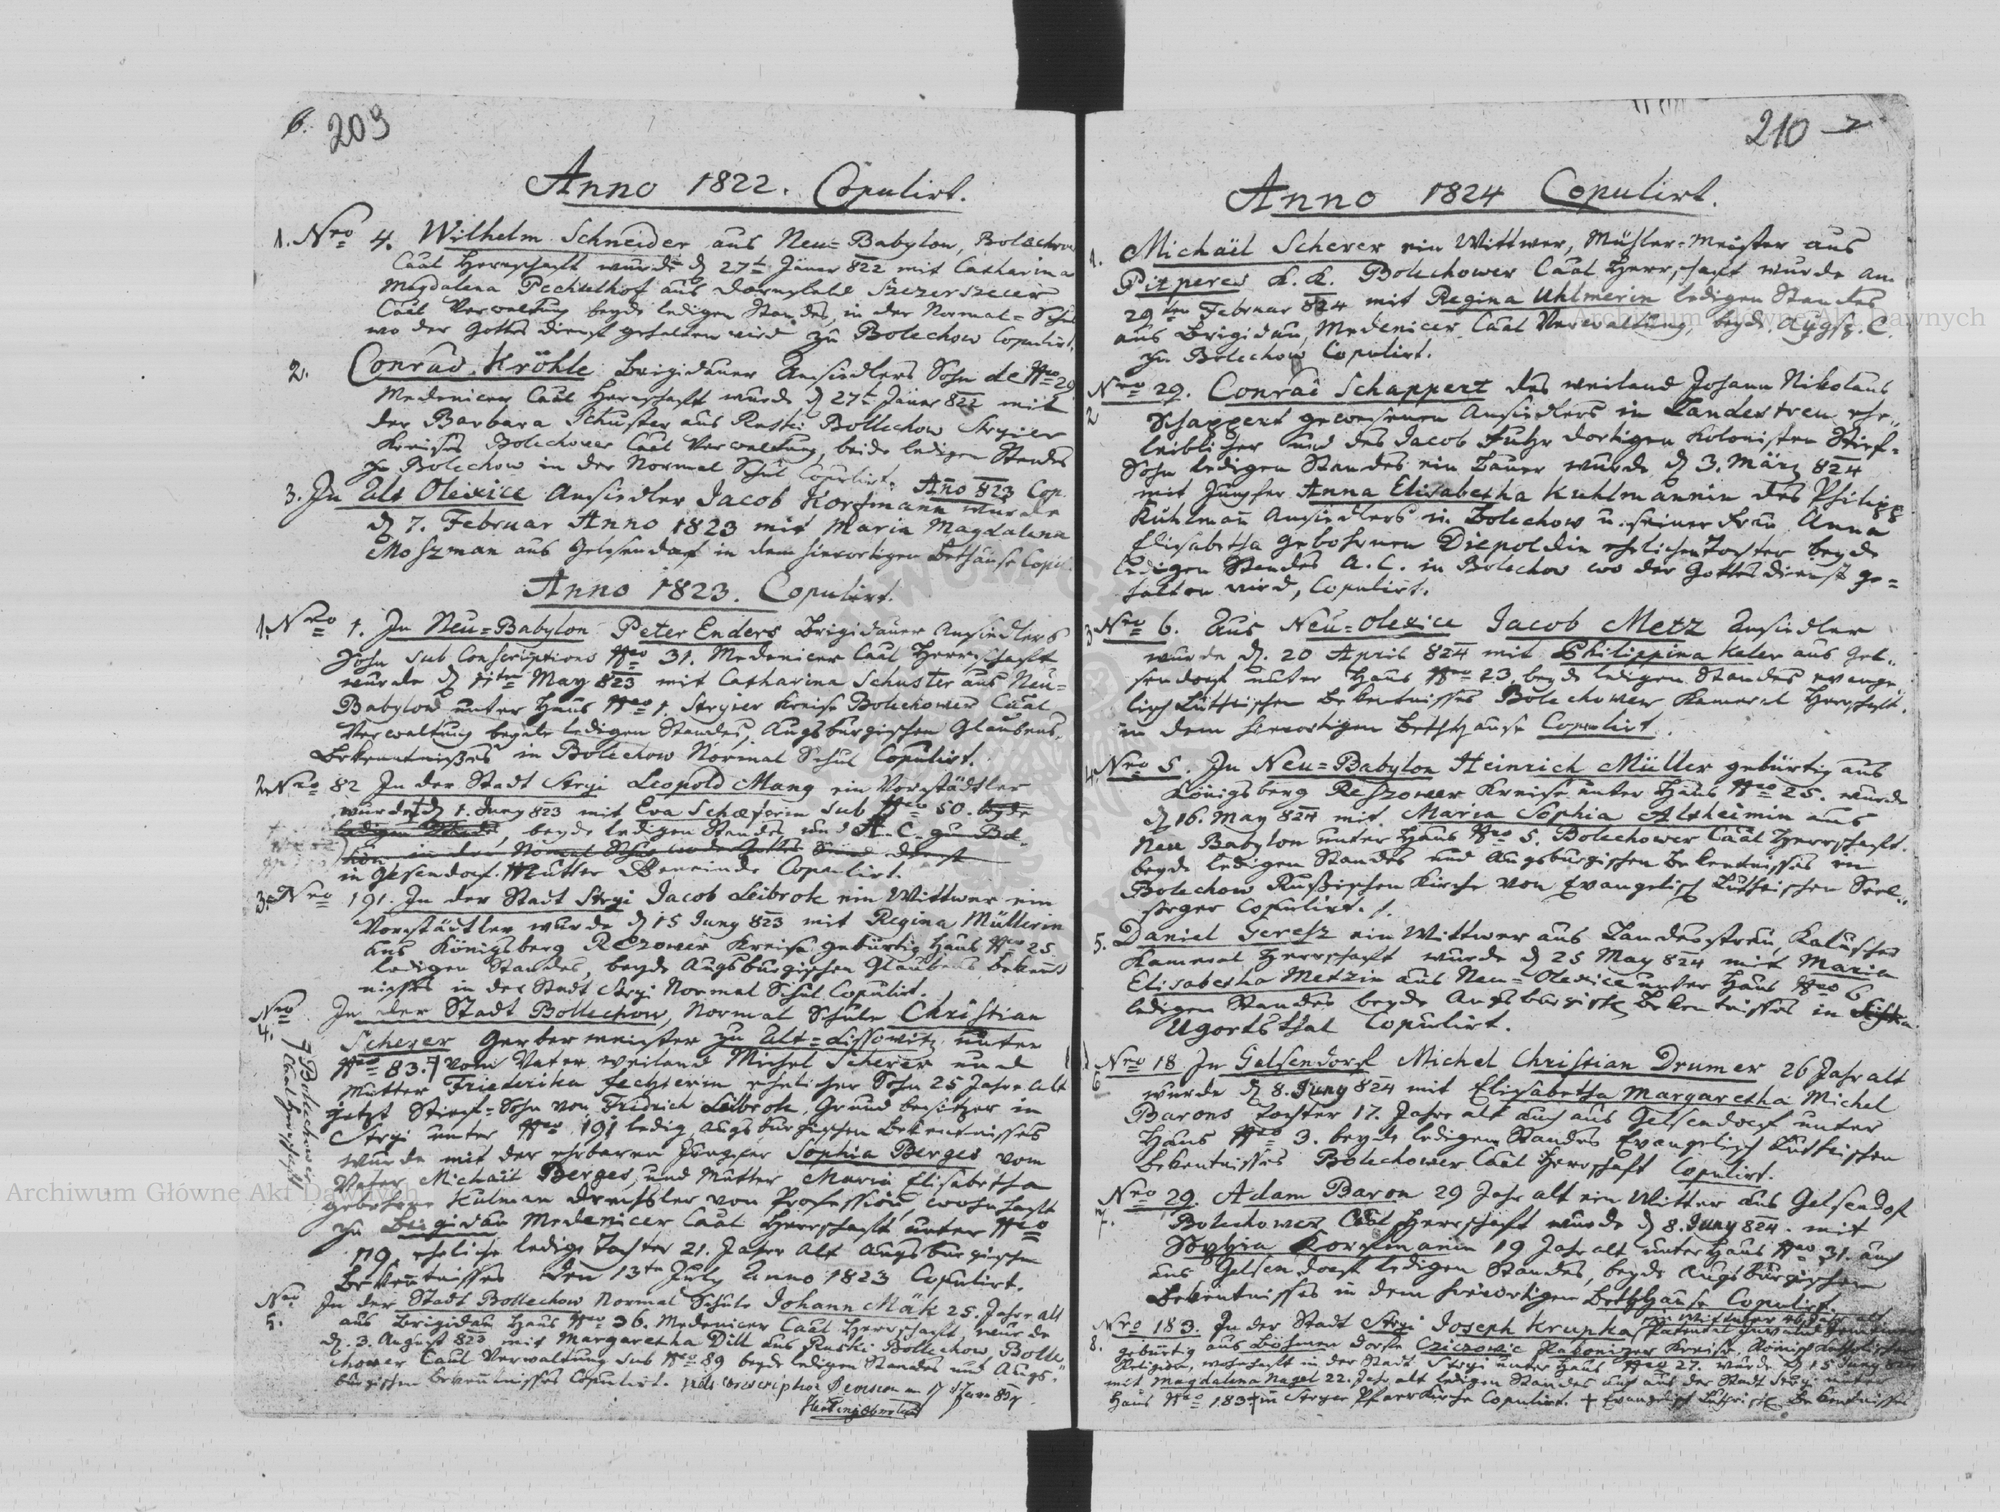 6. 203
Anno 1822. Copulirt.
1. Nro 4. Wilhelm Schneider aus Neu=Babylon, Bolechow
Caal Herrschaft wurde d 27t Jäner 822 mit Catharina
Magdalena Pechtelhof aus
Caal Verwaltung beyde ledigen Standes, in der Normal=Schul
wo der Gottes dienst gehalten wird zu Bolechow Copulirt.
2. Conrad Kröhle Brigidauer Ansiedlers Sohn de Nro 29
Medenicer Caal Herrschaft wurde d 27t Jäner 822 mit
der Barbara Schuster aus Ruski Bollechow Stryier
Kreises Bolechower Caal Verwaltung, beide ledigen Standes
zu Bolechow in der Normal Schul Copulirt. Año 823 Cop.
3. In Alt Olexice Ansiedler Jacob Korfmann wurde
d 7. Februar Anno 1823 mit Maria Magdalena
Moszman aus Gelsendorf in dem hierortigen Bethause Copul.
Anno 1823. Copulirt.
1. Nro 1. In Neu=Babylon Peter Enders Brigidauer Ansiedlers
Sohn sub Conscriptions Nro 31. Medenicer Caal Herrschaft
wurde d 11ten May 823 mit Catharina Schuster aus Neu=
Babylon unter Haus Nro 1. Stryier Kreise Bolechower Caal
Verwaltung beyde ledigen Standes, Augsburgischen Glaubens
Bekenntnißes in Bolechow Normal Schul Copulirt.
2. Nro 82 In der Stadt Stryi Leopold Mang ein Vorstädtler
wurde d 1. Juny 823 mit Eva Schæferin sub Nro 50. beyde
ledigen Standes, beyde ledigen Standes und A. C. zu Bol
in Gelsendorf Mutter Gemeinde Copulirt.
3. Nro 191. In der Stadt Stryi Jacob Leibrok ein Wittwer ein
Vorstädtler wurde d 15 Juny 823 mit Regina Müllerin
aus Königsberg Rezower Kreise gebürtig Haus Nro 25
ledigen Standes, beyde Augsburgischen Glaubens bekent
nisses in der Stadt Stryi Normal Schul Copulirt.
Nro 4. In der Stadt Bollechow, Normal Schule Christian
Scherer Gerbermeister zu Alt=Lissowitz unter
Nro 83. vom Vater weiland Michel Scherer und
Mutter Friederika Fechterin ehelicher Sohn 25 Jahre alt
jetzt Stief=Sohn von Fridrich Leibrok, Grund besitzer in
Stryi unter Nro 191 ledig Augsburgischen Bekentnisses
wurde mit der ehrbaren Jungfer Sophia Berges vom
Vater Michaël Berges, und Mutter Maria Elisabetha
gebohrne Kulman Drechsler von Profession, wohnhaft
zu Brigidau Medenicer Caal Herrschaft unter Nro
119, eheliche ledige Tochter 21. Jahre alt Augsburgischen
Bekentnisses den 13ten July Anno 1823 Copulirt.
Bolechower Caal Herrschaft
Nro 5. In der Stadt Bollechow Normal Schule Johann Mäk 25. Jahre alt
aus Brigidau Haus Nro 36. Medenicer Caal Herrschaft, wurde
d. 3. August 823 mit Margaretha Dill aus Ruski Bollechow Bolle
chower Caal Verwaltung sub Nro 89 beyde ledigen Standes und Augs=
burgischen Bekenntnisses Copulirt.
210
Anno 1824 Copulirt.
1. Michaël Scherer ein Wittwer, Müller=Meister aus
Pitperes K. K. Bolechower Caal Herrschaft wurde am
29ten Februar 824 mit Regina Uhlmerin ledigen Standes
aus Brigidau, Medenicer Caal Verwaltung, beyde Augsp. C.
zu Bolechow Copulirt.
Nro 29. Conrad Schappert des weiland Johann Nikolaus
2 Schappert gewesenen Ansiedlers in Landestreu ehe=
leiblicher und des Jacob Fuhr dortigen Kolonisten Stief=
Sohn ledigen Standes ein Bauer wurde d 3. März 824
mit Jungfer Anna Elisabetha Kuhlmannin des Philipp
Kuhlman Ansiedlers in Bolechow u. seiner Frau Anna
Elisabetha gebohrnen Diepoldin ehelichen Tochter beyde
ledigen Standes A. C. in Bolechow wo der Gottesdienst ge=
halten wird, Copulirt.
3 Nro 6. Aus Neu=Olexice Jacob Metz Ansiedler
wurde d. 20 April 824 mit Philippina Keler aus Gel=
sendorf unter Haus Nro 23, beyde ledigen Standes evange
lisch Luthrischen Bekentnisses Bolechower Kameral Herrschaft.
in dem hierortigen Bethhause Copulirt.
4. Nro 5. In Neu=Babylon Heinrich Müller gebürtig aus
Königsberg Reszower Kreise unter Haus Nro 25. wurde
d 16. May 824 mit Maria Sophia Alzheimin aus
Neu Babylon unter Haus Nro 5. Bolechower Caal Herrschaft.
beyde ledigen Standes und Augsburgischen Bekentnisses in
Bolechow Rußischen Kirche von Evangelisch Luthrischen Seel=
sorger Copulirt.
5. Daniel Geresz ein Wittwer aus Landestreu, Kalusher
Kameral Herrschaft wurde d 25 May 824 mit Maria
Elisabetha Metzin aus Neu=Olexice unter Haus Nro 6
ledigen Standes beyde Augsburgisch Bekentnisses in
Ugartsthal Copulirt.
6 Nro 18 In Gelsendorf Michel Christian Drumer 26 Jahr alt
wurde d 8. Juny 824 mit Elisabetha Margaretha Michel
Barons Tochter 17. Jahre alt auch aus Gelsendorf unter
Haus Nro 3. beyde ledigen Standes Evangelisch Luthrischen
Bekentnisses Bolechower Caal Herrschaft Copulirt.
Nro 29. Adam Baron 29 Jahr alt ein Wittwer aus Gelsendorf
7. Bolechower Caal Herrschaft wurde d 8. Juny 824. mit
Sophia Korfmanin 19 Jahr alt unter Haus Nro 31. auch
aus Gelsendorf ledigen Standes, beyde Augsburgischen
Bekentnisses in dem hierortigen Bethhause Copulirt.
ein Wittwer 46 Jahr alt
Nro 183. In der Stadt Stryi Joseph Krupka Patental Invalid
8. gebürtig aus Böhmen Dorfe Cziczowic Rakonizer Kreise, Römisch Katholischen
Religion, wohnhaft in der Stadt Stryi unter Haus Nro 27. wurde d 15 Juny 824
mit Magdalena Nagel 22. Jahr alt ledigen Standes auch aus der Stadt Stryi unter
Haus Nro 183 + in Stryer Pfarr Kirche Copulirt. + Evangelisch Luthrisch Bekentnisses
Archiwum Główne Akt Dawnych
Archiwum Główne Akt Dawnych